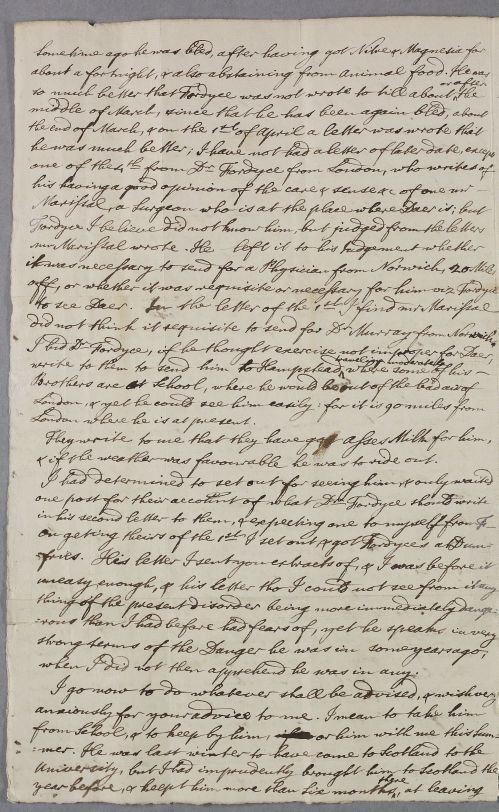 sometime ago he was bled, after having got Nitre & Magnesia for
about a fortnight, & also abstaining from animal food. He was
so much better that Fordyce was not wrote to till about or after the
middle of March, since that he has been again bled, about
the end of March, & on the 1st of April a letter was wrote that
he was much better; I have not had a letter of later date, except
one of the 4th from Dr Fordyce from London, who writes of
his having a good opinion of the care & sense &c of one mr
Marissal, a Surgeon who is at the place where Daer is; but
Fordyce I believe did not know him, but judged from the letters
mr Marissal wrote. He left it to his Judgement whether
it was necessary to send for a Physician from Norwich, 20 Miles
off, or whether it was requisite or necessary for him viz Fordyce
to see Daer. In the letter of the 1st I find mr Marissal
did not think it requisite to send for Dr Murray from Norwich.
I bid Dr Fordyce, if he thought exercise not improper for Daer,
write to them to send him travelling moderately to Hampstead, where some of his
Brothers are at School, where he would be out of the bad air of
London, & yet he could see him easily: for it is 90 miles from
London where he is at present.
They write to me that they have got asses Milk for him,
& if the weather was favourable he was to ride out.
I had determined to set out for seeing him, & only waited
one post for their account of what Dr Fordyce should write
in his second letter to them, & expecting one to myself from F
on getting theirs of the 1st I set out & got Fordyces at Dum-
fries. His letter I sent you extracts of, & I was before it
uneasy enough, & his letter tho I could not see from it any
thing of the present disorder being more immediately dange-
-rous than I had before had fears of, yet he speaks in very
strong terms of the Danger he was in some years ago,
when I did not then apprehend he was in any.
I go now to do whatever shall be advised, & wish very
anxiously for your advice to me. I mean to take him
from School, & to keep by him, or him with me this sum-
-mer. He was last winter to have come to Scotland to the
University, but I had imprudently brought him to Scotland the
year before, & kept him more than six months there, at leaving